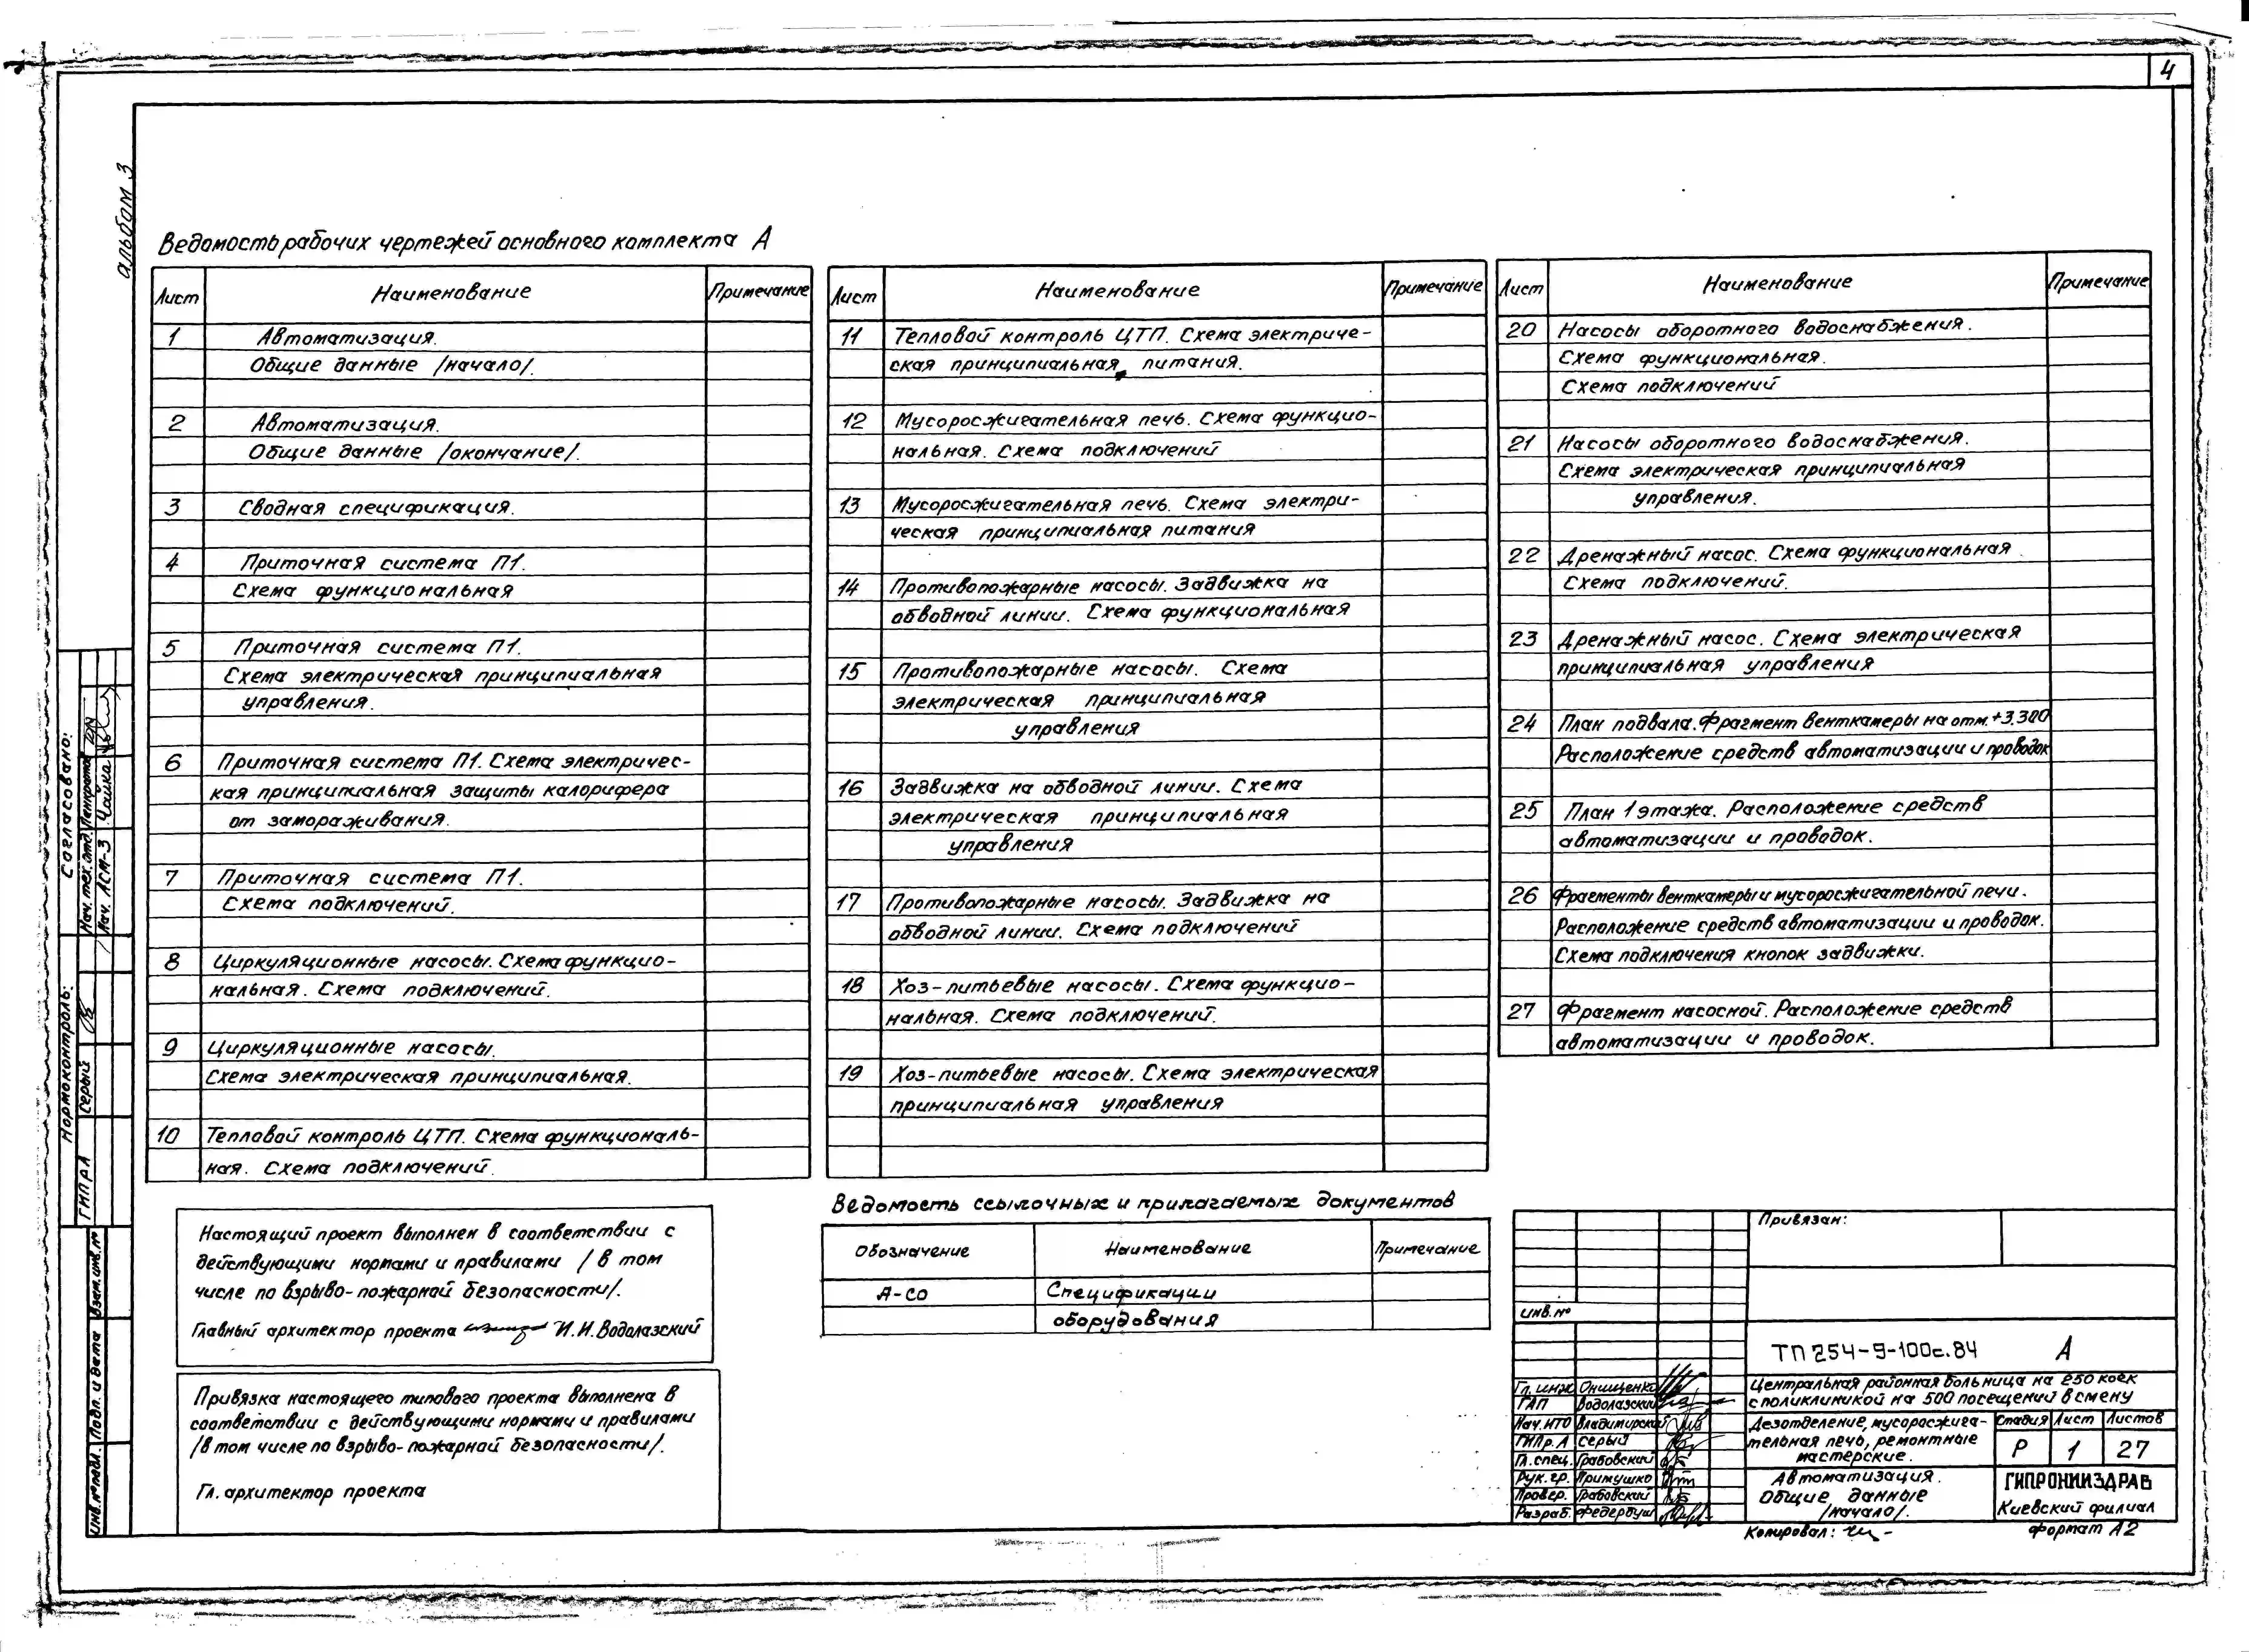 4
альбом 3
Ведомость рабочих чертежей основного комплекта А
Лист Наименование Примечание
1 Автоматизация.
Общие данные /начало/.
2 Автоматизация.
Общие данные /окончание/.
3 Сводная спецификация.
4 Приточная система П1.
Схема функциональная
5 Приточная система П1.
Схема электрическая принципиальная
управления.
6 Приточная система П1. Схема электричес-
кая принципиальная защиты калорифера
от замораживания.
7 Приточная система П1.
Схема подключений.
8 Циркуляционные насосы. Схема функцио-
нальная. Схема подключений.
9 Циркуляционные насосы.
Схема электрическая принципиальная.
10 Тепловой контроль ЦТП. Схема функциональ-
ная. Схема подключений.
Лист Наименование Примечание
11 Тепловой контроль ЦТП. Схема электриче-
ская принципиальная питания.
12 Мусоросжигательная печь. Схема функцио-
нальная. Схема подключений
13 Мусоросжигательная печь. Схема электри-
ческая принципиальная питания
14 Противопожарные насосы. Задвижка на
обводной линии. Схема функциональная
15 Противопожарные насосы. Схема
электрическая принципиальная
управления
16 Задвижка на обводной линии. Схема
электрическая принципиальная
управления
17 Противопожарные насосы. Задвижка на
обводной линии. Схема подключений
18 Хоз-питьевые насосы. Схема функцио-
нальная. Схема подключений.
19 Хоз-питьевые насосы. Схема электрическая
принципиальная управления
Лист Наименование Примечание
20 Насосы оборотного водоснабжения.
Схема функциональная.
Схема подключений
21 Насосы оборотного водоснабжения.
Схема электрическая принципиальная
управления.
22 Дренажный насос. Схема функциональная.
Схема подключений.
23 Дренажный насос. Схема электрическая
принципиальная управления
24 План подвала. Фрагмент венткамеры на отм. +3.300
Расположение средств автоматизации и проводок
25 План 1 этажа. Расположение средств
автоматизации и проводок.
26 Фрагменты венткамеры и мусоросжигательной печи.
Расположение средств автоматизации и проводок.
Схема подключения кнопок задвижки.
27 Фрагмент насосной. Расположение средств
автоматизации и проводок.
Настоящий проект выполнен в соответствии с
действующими нормами и правилами /в том
числе по взрыво-пожарной безопасности/.
Главный архитектор проекта И.И. Водолазский
Привязка настоящего типового проекта выполнена в
соответствии с действующими нормами и правилами
/в том числе по взрыво-пожарной безопасности/.
Гл. архитектор проекта
Ведомость ссылочных и прилагаемых документов
Обозначение Наименование Примечание
А-СО Спецификации
оборудования
Привязан:
Инв.№
ТП 254-9-100с.84 А
Центральная районная больница на 250 коек
с поликлиникой на 500 посещений в смену
Гл. инж Онищенко
ГАП Водолазский
Нач. ИТО Владимирский
ГИПр.А Серый
Гл. спец. Грабовский
Рук. гр. Примушко
Провер. Грабовский
Разраб. Федербуш
Дезотделение, мусоросжига-
тельная печь, ремонтные
мастерские.
Стадия Лист Листов
Р 1 27
Автоматизация.
Общие данные
/начало/.
ГИПРОНИИЗДРАВ
Киевский филиал
Копировал:
формат А2
Согласовано:
Нач. тех. отд. Панкратов
Нач. ЛСМ-3 Чайка
Нормоконтроль:
ГИПрА Серый
Взам. инв. №
Подп. и дата
Инв. № подл.